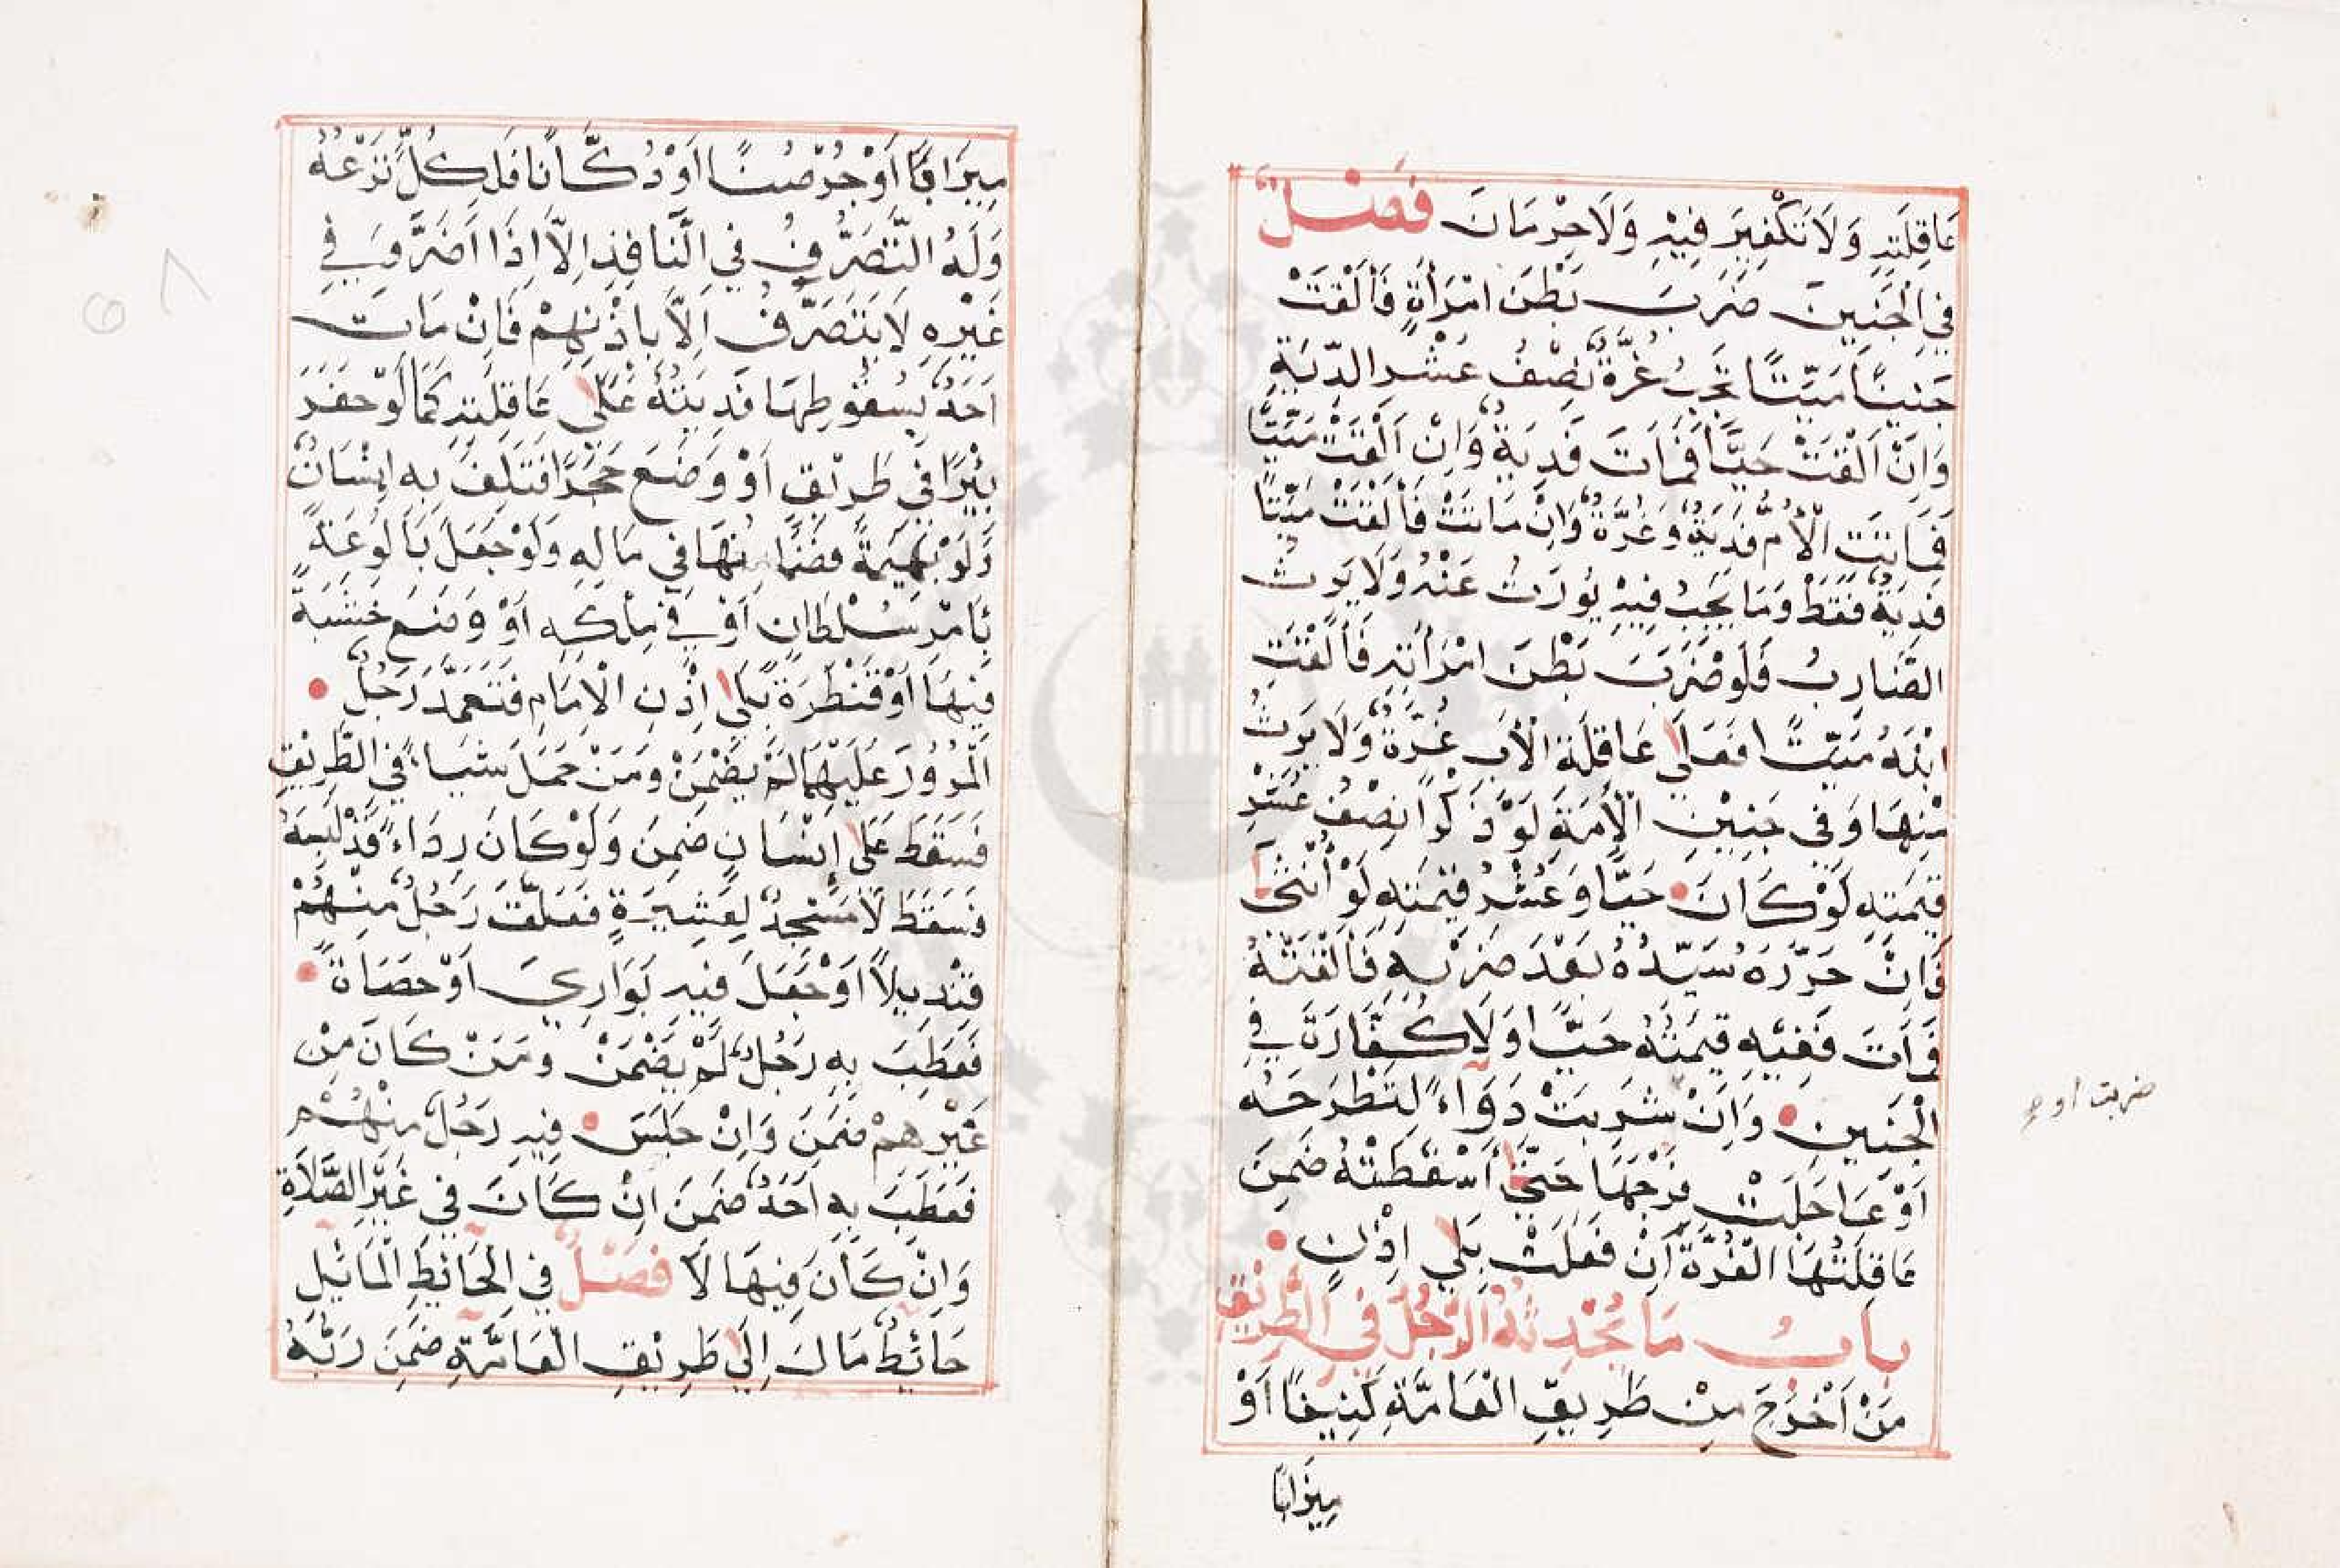 عَاقِلَتِهِ وَلَا تَكْفِيرَ فِيهِ وَلَا حِرْمَانَ فَصْلٌ
فِي الْجَنِينِ ضَرَبَ بَطْنَ امْرَأَةٍ فَأَلْقَتْ
جَنِينًا مَيِّتًا تَجِبُ غُرَّةٌ نِصْفُ عُشْرِ الدِّيَةِ
وَإِنْ أَلْقَتْ حَيًّا فَمَاتَ فَدِيَةٌ وَإِنْ أَلْقَتْ مَيِّتًا
فَمَاتَتِ الْأُمُّ فَدِيَةٌ وَغُرَّةٌ وَإِنْ مَاتَتْ فَأَلْقَتْ مَيِّتًا
فَدِيَةٌ فَقَطْ وَمَا يَجِبُ فِيهِ يُورَثُ عَنْهُ وَلَا يَرِثُ
الضَّارِبُ فَلَوْ ضَرَبَ بَطْنَ امْرَأَتِهِ فَأَلْقَتِ
ابْنَهُ مَيِّتًا فَعَلَى عَاقِلَةِ الْأَبِ غُرَّةٌ وَلَا يَرِثُ
مِنْهَا وَفِي جَنِينِ الْأَمَةِ لَوْ ذَكَرًا نِصْفُ عُشْرِ
قِيمَتِهِ لَوْ كَانَ حَيًّا وَعُشْرُ قِيمَتِهِ لَوْ أُنْثَى
فَإِنْ حَرَّرَهُ سَيِّدُهُ بَعْدَ ضَرْبِهِ فَأَلْقَتْهُ
فَمَاتَ فَفِيهِ قِيمَتُهُ حَيًّا وَلَا كَفَّارَةَ فِي
الْجَنِينِ وَإِنْ شَرِبَتْ دَوَاءً لِتَطْرَحَهُ
أَوْ عَاجَلَتْ فَرْجَهَا حَتَّى أَسْقَطَتْهُ ضَمِنَ
عَاقِلَتُهَا الْغُرَّةَ إِنْ فَعَلَتْ بِلَا إِذْنٍ
بَابُ مَا يُحْدِثُهُ الرَّجُلُ فِي الطَّرِيقِ
مَنْ أَخْرَجَ مِنْ طَرِيقِ الْعَامَّةِ كَنِيفًا أَوْ
مِيزَابًا
مِيزَابًا أَوْ جُرْصُنًا أَوْ دُكَّانًا فَلِكُلٍّ نَزْعُهُ
وَلَهُ التَّصَرُّفُ فِي النَّافِذِ إِلَّا إِذَا أَضَرَّ وَفِي
غَيْرِهِ لَا يَتَصَرَّفُ إِلَّا بِإِذْنِهِمْ فَإِنْ مَاتَ
أَحَدٌ بِسُقُوطِهَا فَدِيَتُهُ عَلَى عَاقِلَتِهِ كَمَا لَوْ حَفَرَ
بِئْرًا فِي طَرِيقٍ أَوْ وَضَعَ حَجَرًا فَتَلِفَ بِهِ إِنْسَانٌ
وَلَوْ بَهِيمَةً فَضَمَانُهَا فِي مَالِهِ وَلَوْ جَعَلَ بَالُوعَةً
بِأَمْرِ سُلْطَانٍ أَوْ فِي مِلْكِهِ أَوْ وَضَعَ خَشَبَةً
فِيهَا أَوْ قَنْطَرَةً بِلَا إِذْنِ الْإِمَامِ فَتَعَمَّدَ رَجُلٌ
الْمُرُورَ عَلَيْهَا لَمْ يَضْمَنْ وَمَنْ حَمَلَ شَيْاءً فِي الطَّرِيقِ
فَسَقَطَ عَلَى إِنْسَانٍ ضَمِنَ وَلَوْ كَانَ رِدَاءً قَدْ لَبِسَهُ
فَسَقَطَ لَا مَسْجِدٌ لِعَشِيرَةٍ فَعَلَّقَ رَجُلٌ مِنْهُمْ
قِنْدِيلًا أَوْ جَعَلَ فِيهِ بَوَارِيَ أَوْ حَصَاةً
فَعَطِبَ بِهِ رَجُلٌ لَمْ يَضْمَنْ وَمَنْ كَانَ مِنْ
غَيْرِهِمْ ضَمِنَ وَإِنْ جَلَسَ فِيهِ رَجُلٌ مِنْهُمْ
فَعَطِبَ بِهِ أَحَدٌ ضَمِنَ إِنْ كَانَ فِي غَيْرِ الصَّلَاةِ
وَإِنْ كَانَ فِيهَا لَا فَصْلٌ فِي الْحَائِطِ الْمَائِلِ
حَائِطٌ مَالَ إِلَى طَرِيقِ الْعَامَّةِ ضَمِنَ رَبُّهُ